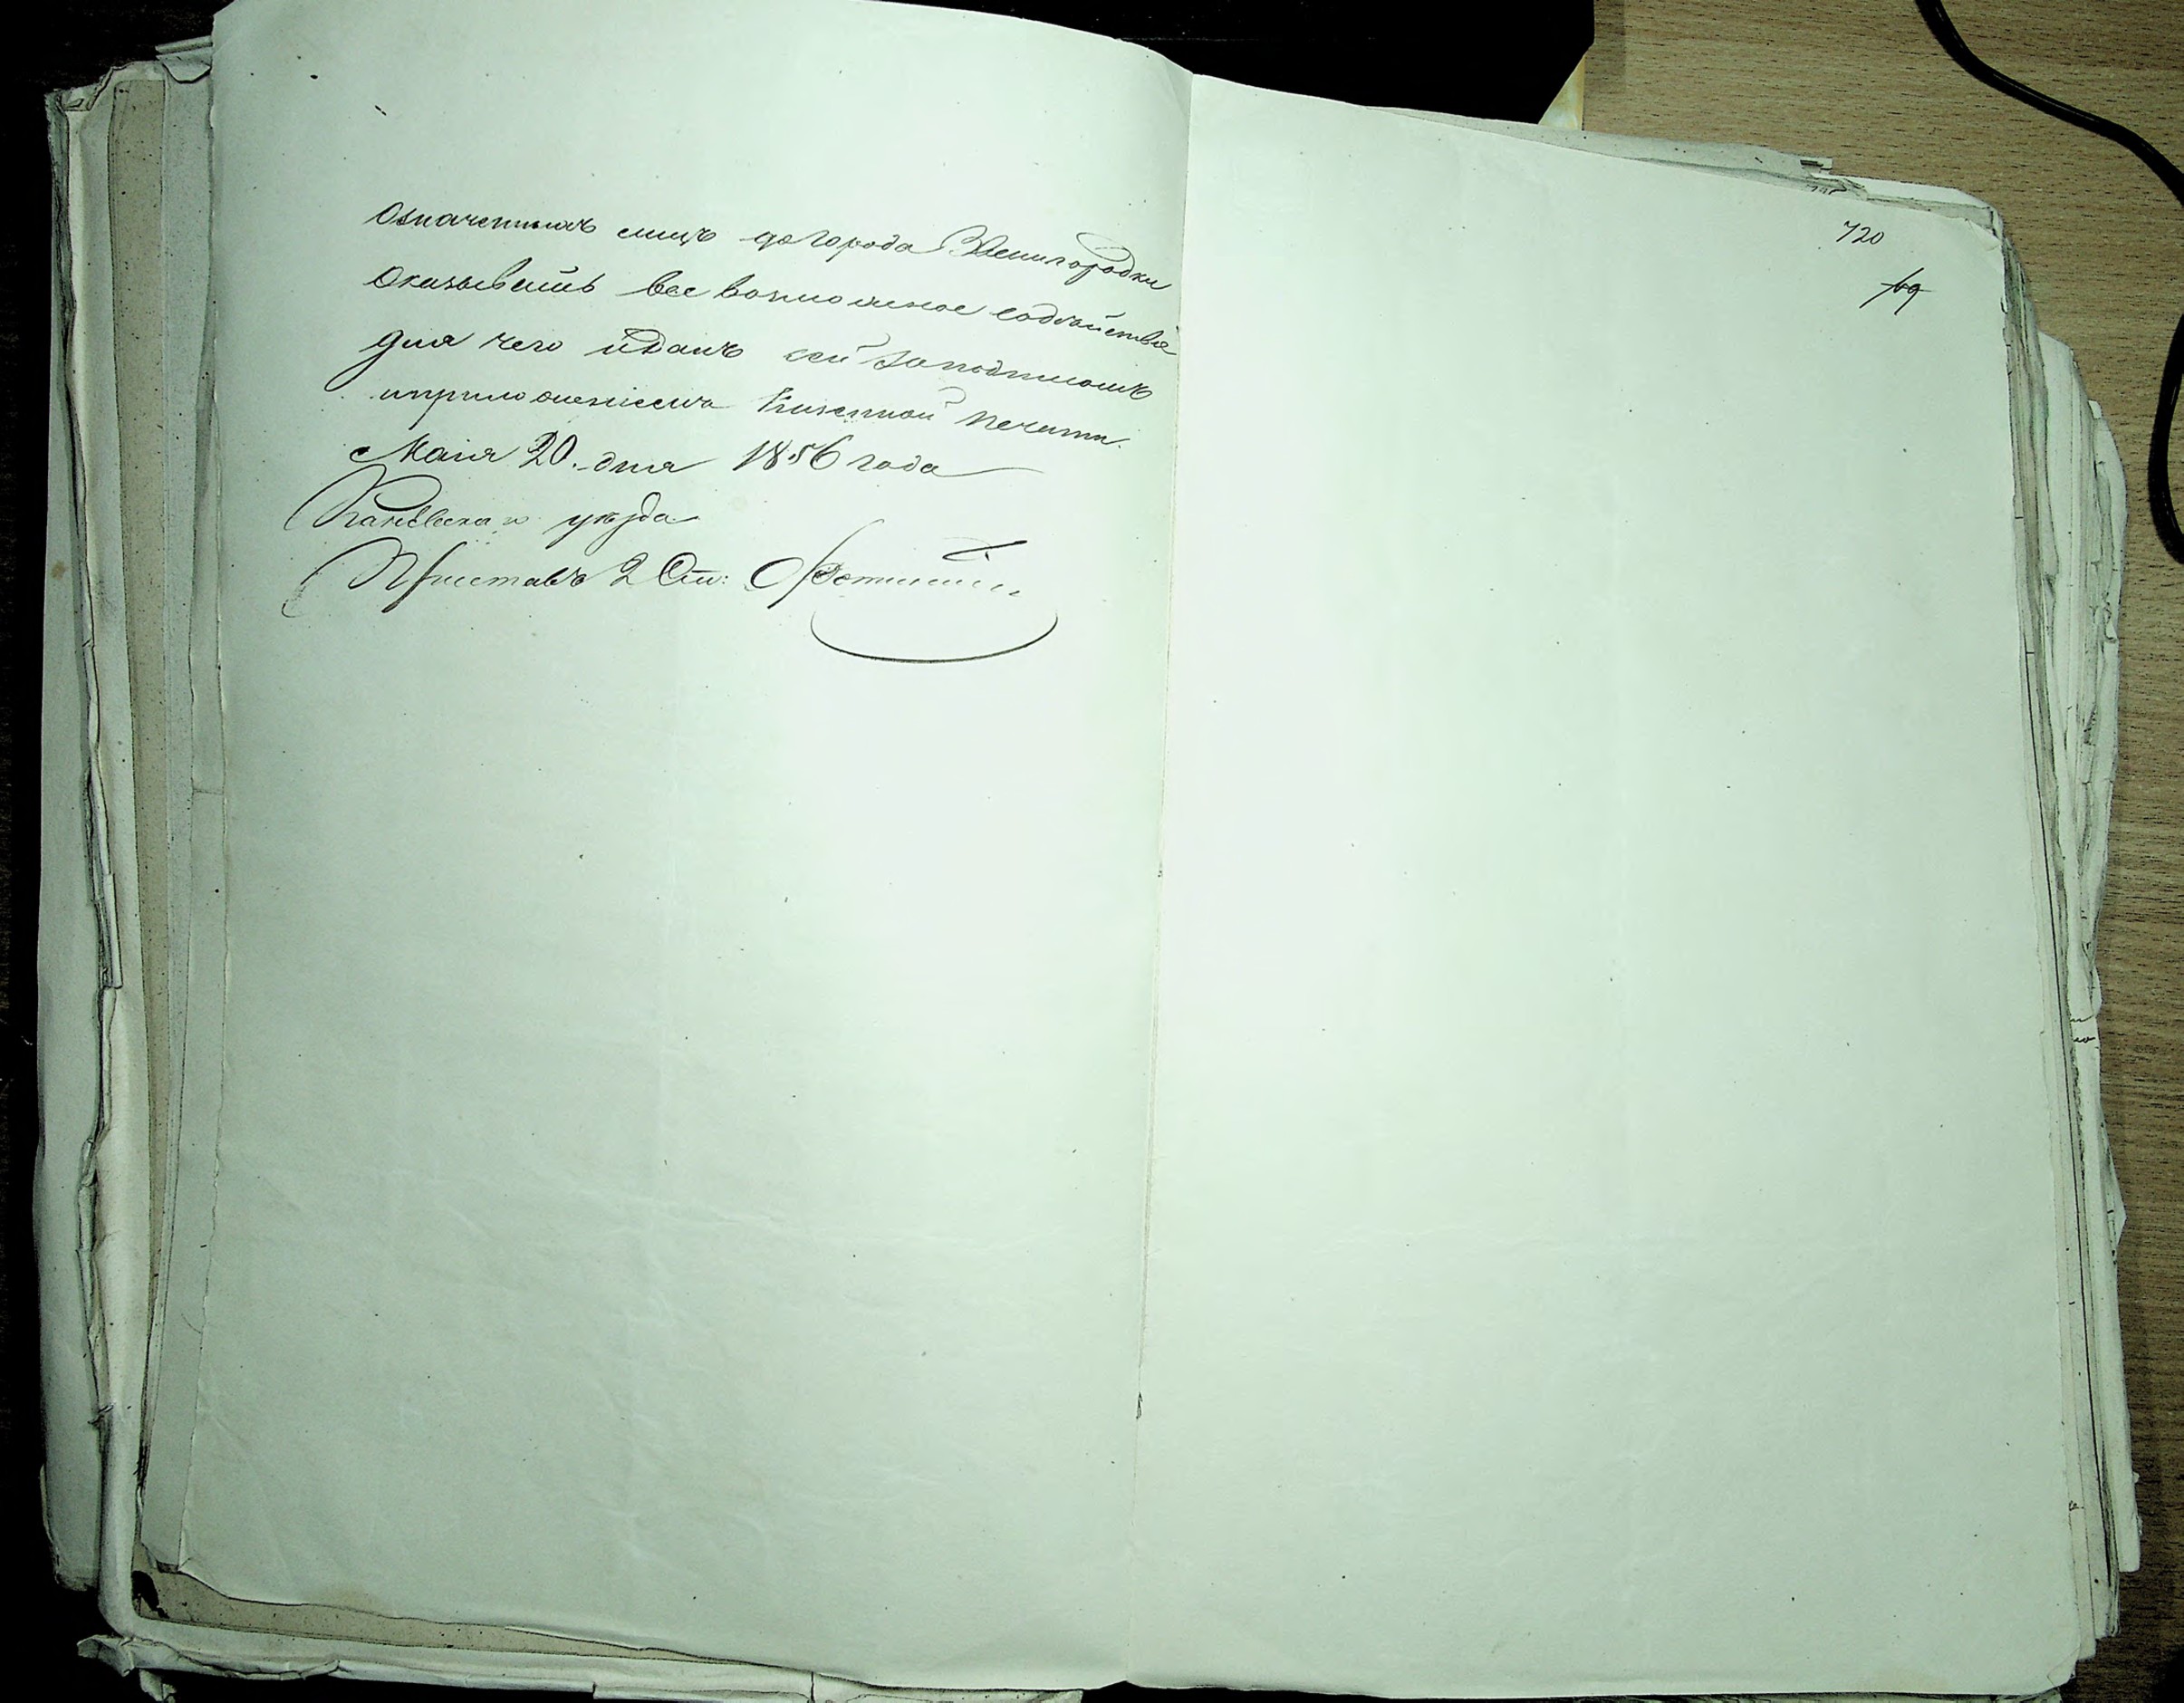 Означенныхъ лицъ до города Звенигородки
оказывать все возможное содѣйствіе
для чего иданъ сей за подписомъ
иприложеніемъ Казенной печати.
Маія 20. дня 1856 года
Каневскаго уѣзда
Приставъ 2 Ст:
720
69